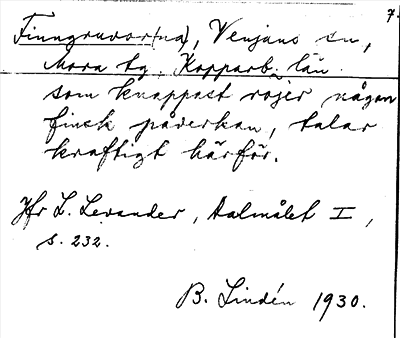 7.
Finngruvor(na), Venjans sn,
Mora tg. Kopparb. län.
som knappast röjer någon
finsk påverkan, talar
kraftigt härför.
Jfr L. Levander, Dalmålet I,
s. 232.
B. Lindén 1930.